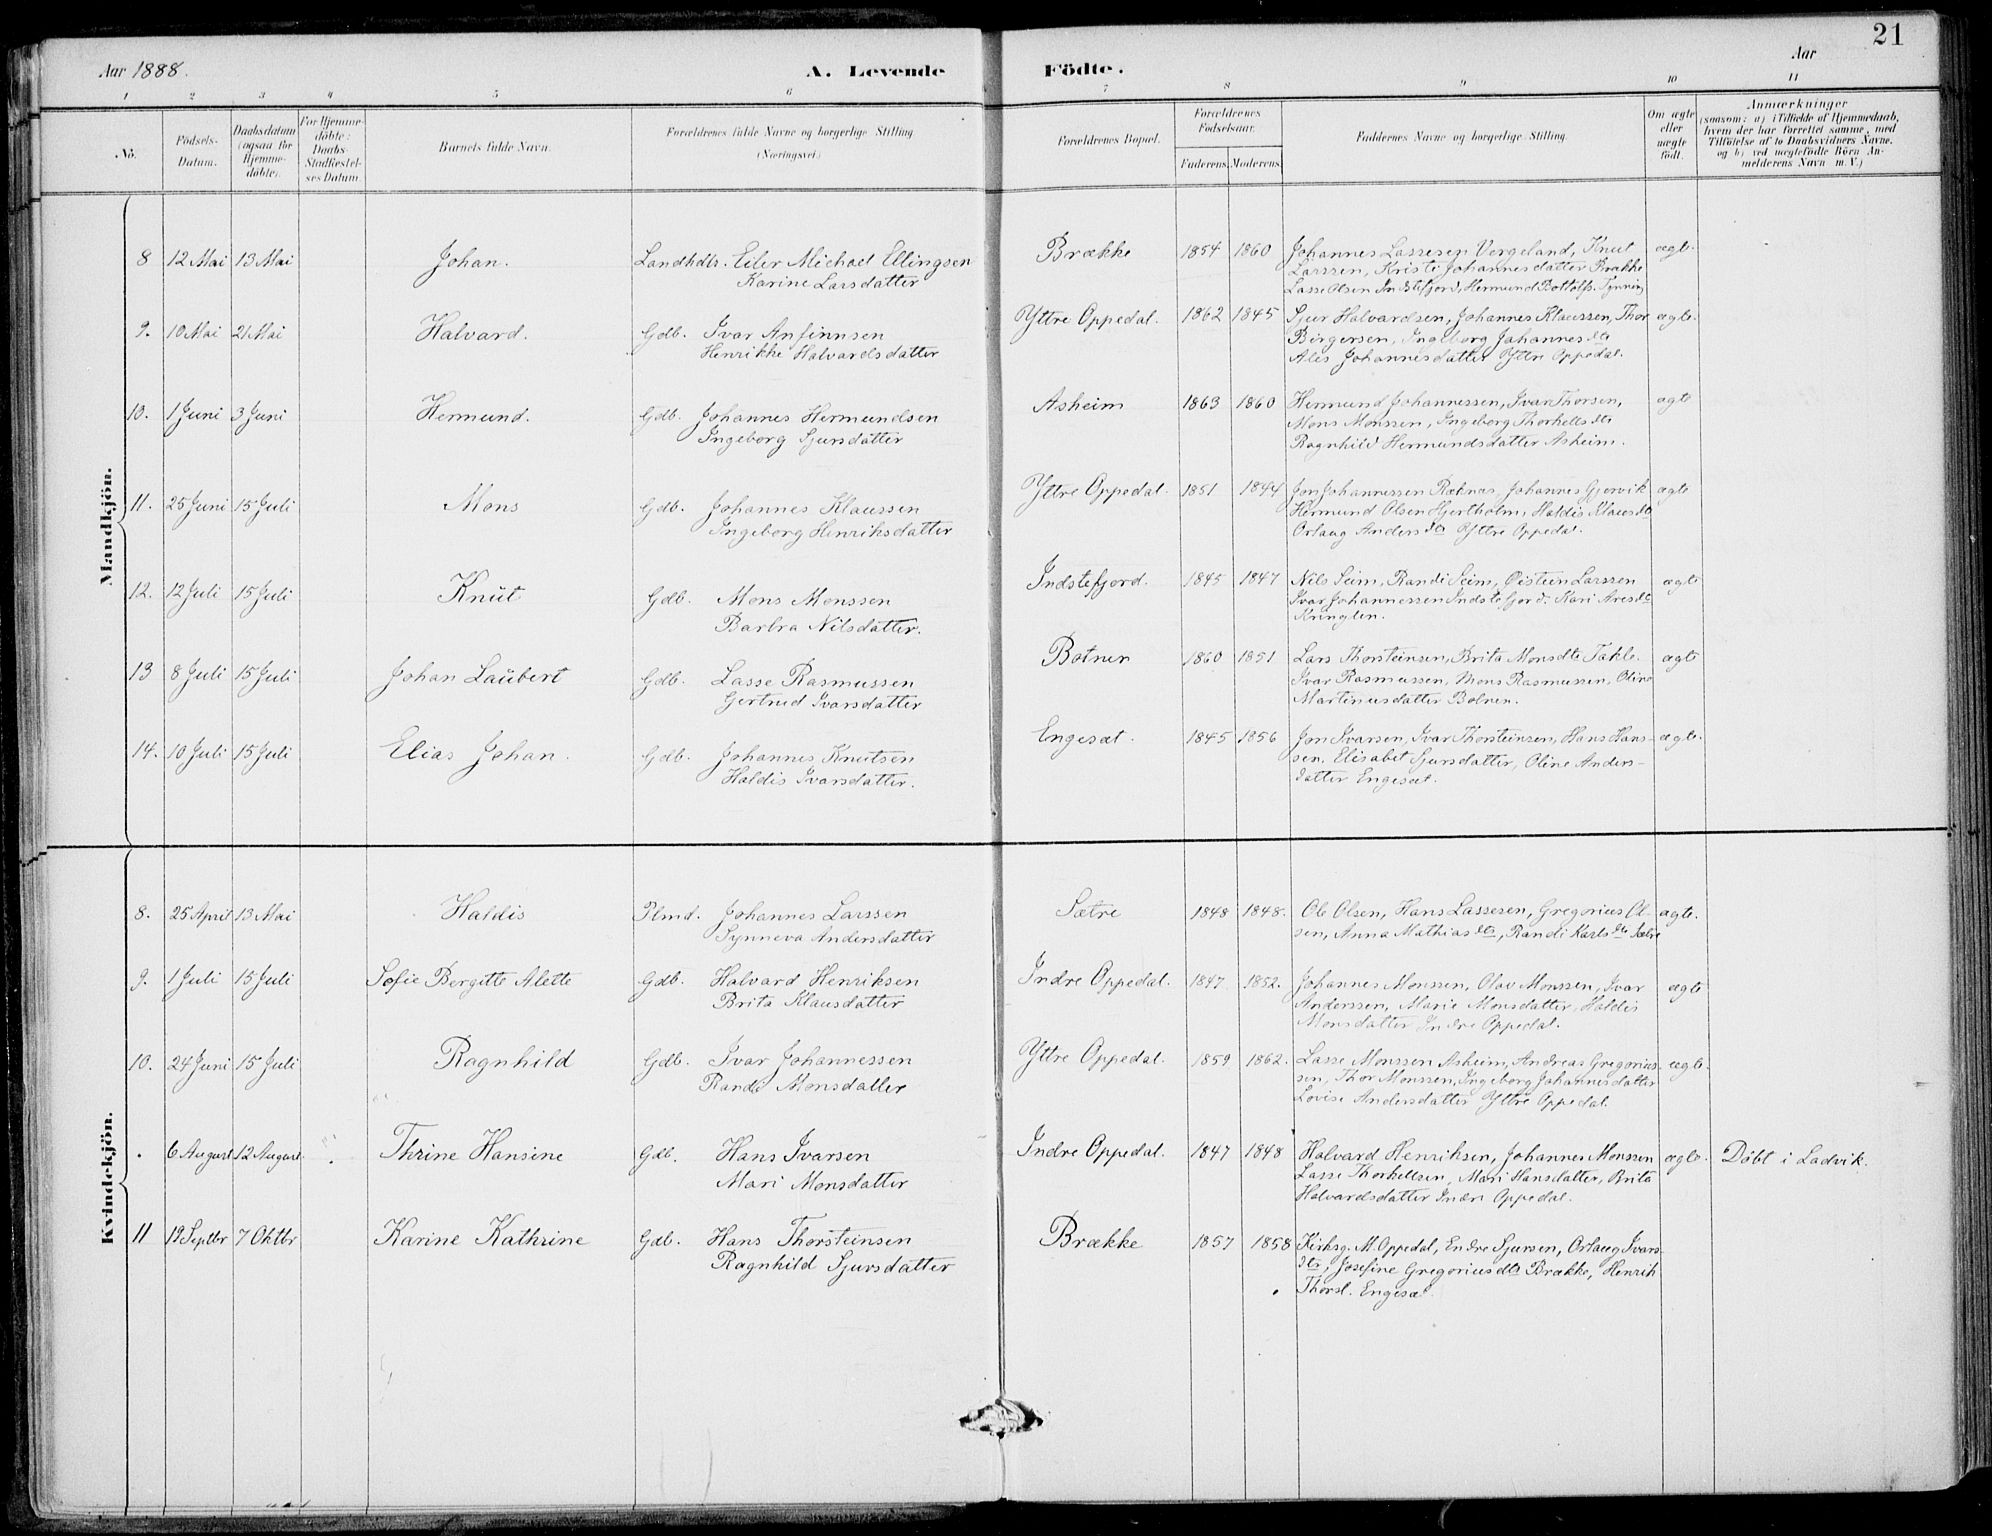 21
Aar 1888.
A. Levende
Födte.
Aar
1 2 3 4 5 6 7 8 9 10 11
No.
Födsels-Datum.
Daabsdatum (ogsaa for Hjemmedöbte).
For Hjemmedöbte: Daabs-Stadfestelses Datum.
Barnets fulde Navn.
Forældrenes fulde Navne og borgerlige Stilling (Næringsvei.)
Forældrenes Bopæl.
Forældrenes Födselsaar.
Faderens. Moderens.
Faddernes Navne og borgerlige Stilling.
Om ægte eller uægte födt.
Anmærkninger
(saasom: a) i Tilfælde af Hjemmedaab,
hvem der har forrettet samme, med
Tilföielse af to Daabsvidners Navne,
og b) ved uægtefödte Börn An-
melderens Navn m. V.)
Mandkjön.
8 12 Mai 13 Mai Johan. Landhdlr. Eiler Michael Ellingsen Brække 1854 1860 Johannes Lassesen Vergeland, Knut ægte.
Karine Larsdatter Larssen, Kristi Johannesdatter Brække
Lasse Olsen Indstefjord, Hermund Bottolfs. Tynning
9. 10 Mai 21 Mai Halvard. Gdb. Ivar Anfinnsen Yttre Oppedal. 1862 1845 Sjur Halvardsen, Johannes Klaussen, Thor ægte.
Henrikke Halvardsdatter Birgersen, Ingeborg Johannesdtr
Ales Johannesdatter Yttre Oppedal.
10. 1 Juni 3 Juni Hermund. Gdb. Johannes Hermundsen Asheim 1863 1860 Hermund Johannessen, Ivar Thorsen, ægte
Ingeborg Sjursdatter Mons Monssen, Ingeborg Thorkellsdtr
Ragnhild Hermundsdatter Asheim.
11. 25 Juni 15 Juli Mons Gdb. Johannes Klaussen Yttre Oppedal. 1851 1844 Jon Johannessen Røknes, Johannes Gjervik ægte
Ingeborg Henriksdatter Hermund Olsen Hjertholm, Haldis Klausdtr
Orlaug Andersdtr Yttre Oppedal.
12. 12 Juli 15 Juli Knut Gdb. Mons Monssen Indstefjord. 1845 1847 Nils Seim, Randi Seim, Øistein Larssen ægte
Barbra Nilsdatter. Ivar Johannessen Indstefjord. Kari Aresdtr
Kringlen.
13 8 Juli 15 Juli Johan Laubert Gdb. Lasse Rasmussen Botnen 1860 1851 Lars Thorsteinsen, Brita Monsdtr Takle. ægte
Gertrud Ivarsdatter Ivar Rasmussen, Mons Rasmussen, Oline
Martinusdatter Botnen.
14. 10 Juli 15 Juli Elias Johan. Gdb. Johannes Knutsen Engesæt. 1845 1856 Jon Ivarsen, Ivar Thorsteinsen, Hans Hans- ægte.
Haldis Ivarsdatter. sen. Elisabet Sjursdatter, Oline Anders-
datter Engesæt.
Kvindekjön.
8. 25 April 13 Mai Haldis Plmd. Johannes Larssen Sætre 1848 1848. Ole Olsen, Hans Lassesen, Gregorius Ol- ægte.
Synneva Andersdatter sen, Anna Mathiasdtr, Randi Karlsdtr Sætre
9. 1 Juli 15 Juli Sofie Bergitte Alette Gdb. Halvard Henriksen Indre Oppedal. 1847 1852. Johannes Monssen, Olav Monssen, Ivar ægte
Brita Klausdatter Anderssen, Marie Monsdatter, Haldis
Monsdatter Indre Oppedal.
10. 24 Juni 15 Juli Ragnhild Gdb. Ivar Johannessen Yttre Oppedal. 1859 1862. Lasse Monssen Asheim, Andreas Gregorius- ægte.
Randi Monsdatter sen, Thor Monssen, Ingeborg Johannesdatter
Lovise Andersdatter Yttre Oppedal.
6 August 12 August Thrine Hansine Gdb. Hans Ivarsen Indre Oppedal. 1847 1848 Halvard Henriksen, Johannes Monssen ægte. Döbt i Ladvik.
Mari Monsdatter Lasse Thorkellsen, Mari Hansdatter, Brita
Halvardsdatter Indre Oppedal.
11 12 Septbr 7 Oktbr Karine Kathrine Gdb. Hans Thorsteinsen Brække 1857 1858 Kirksg. M. Oppedal, Endre Sjursen, Orlaug Ivars-
Ragnhild Sjursdatter dtr, Josefine Gregoriusdtr Brække, Henrik
Thorst. Engesæt.